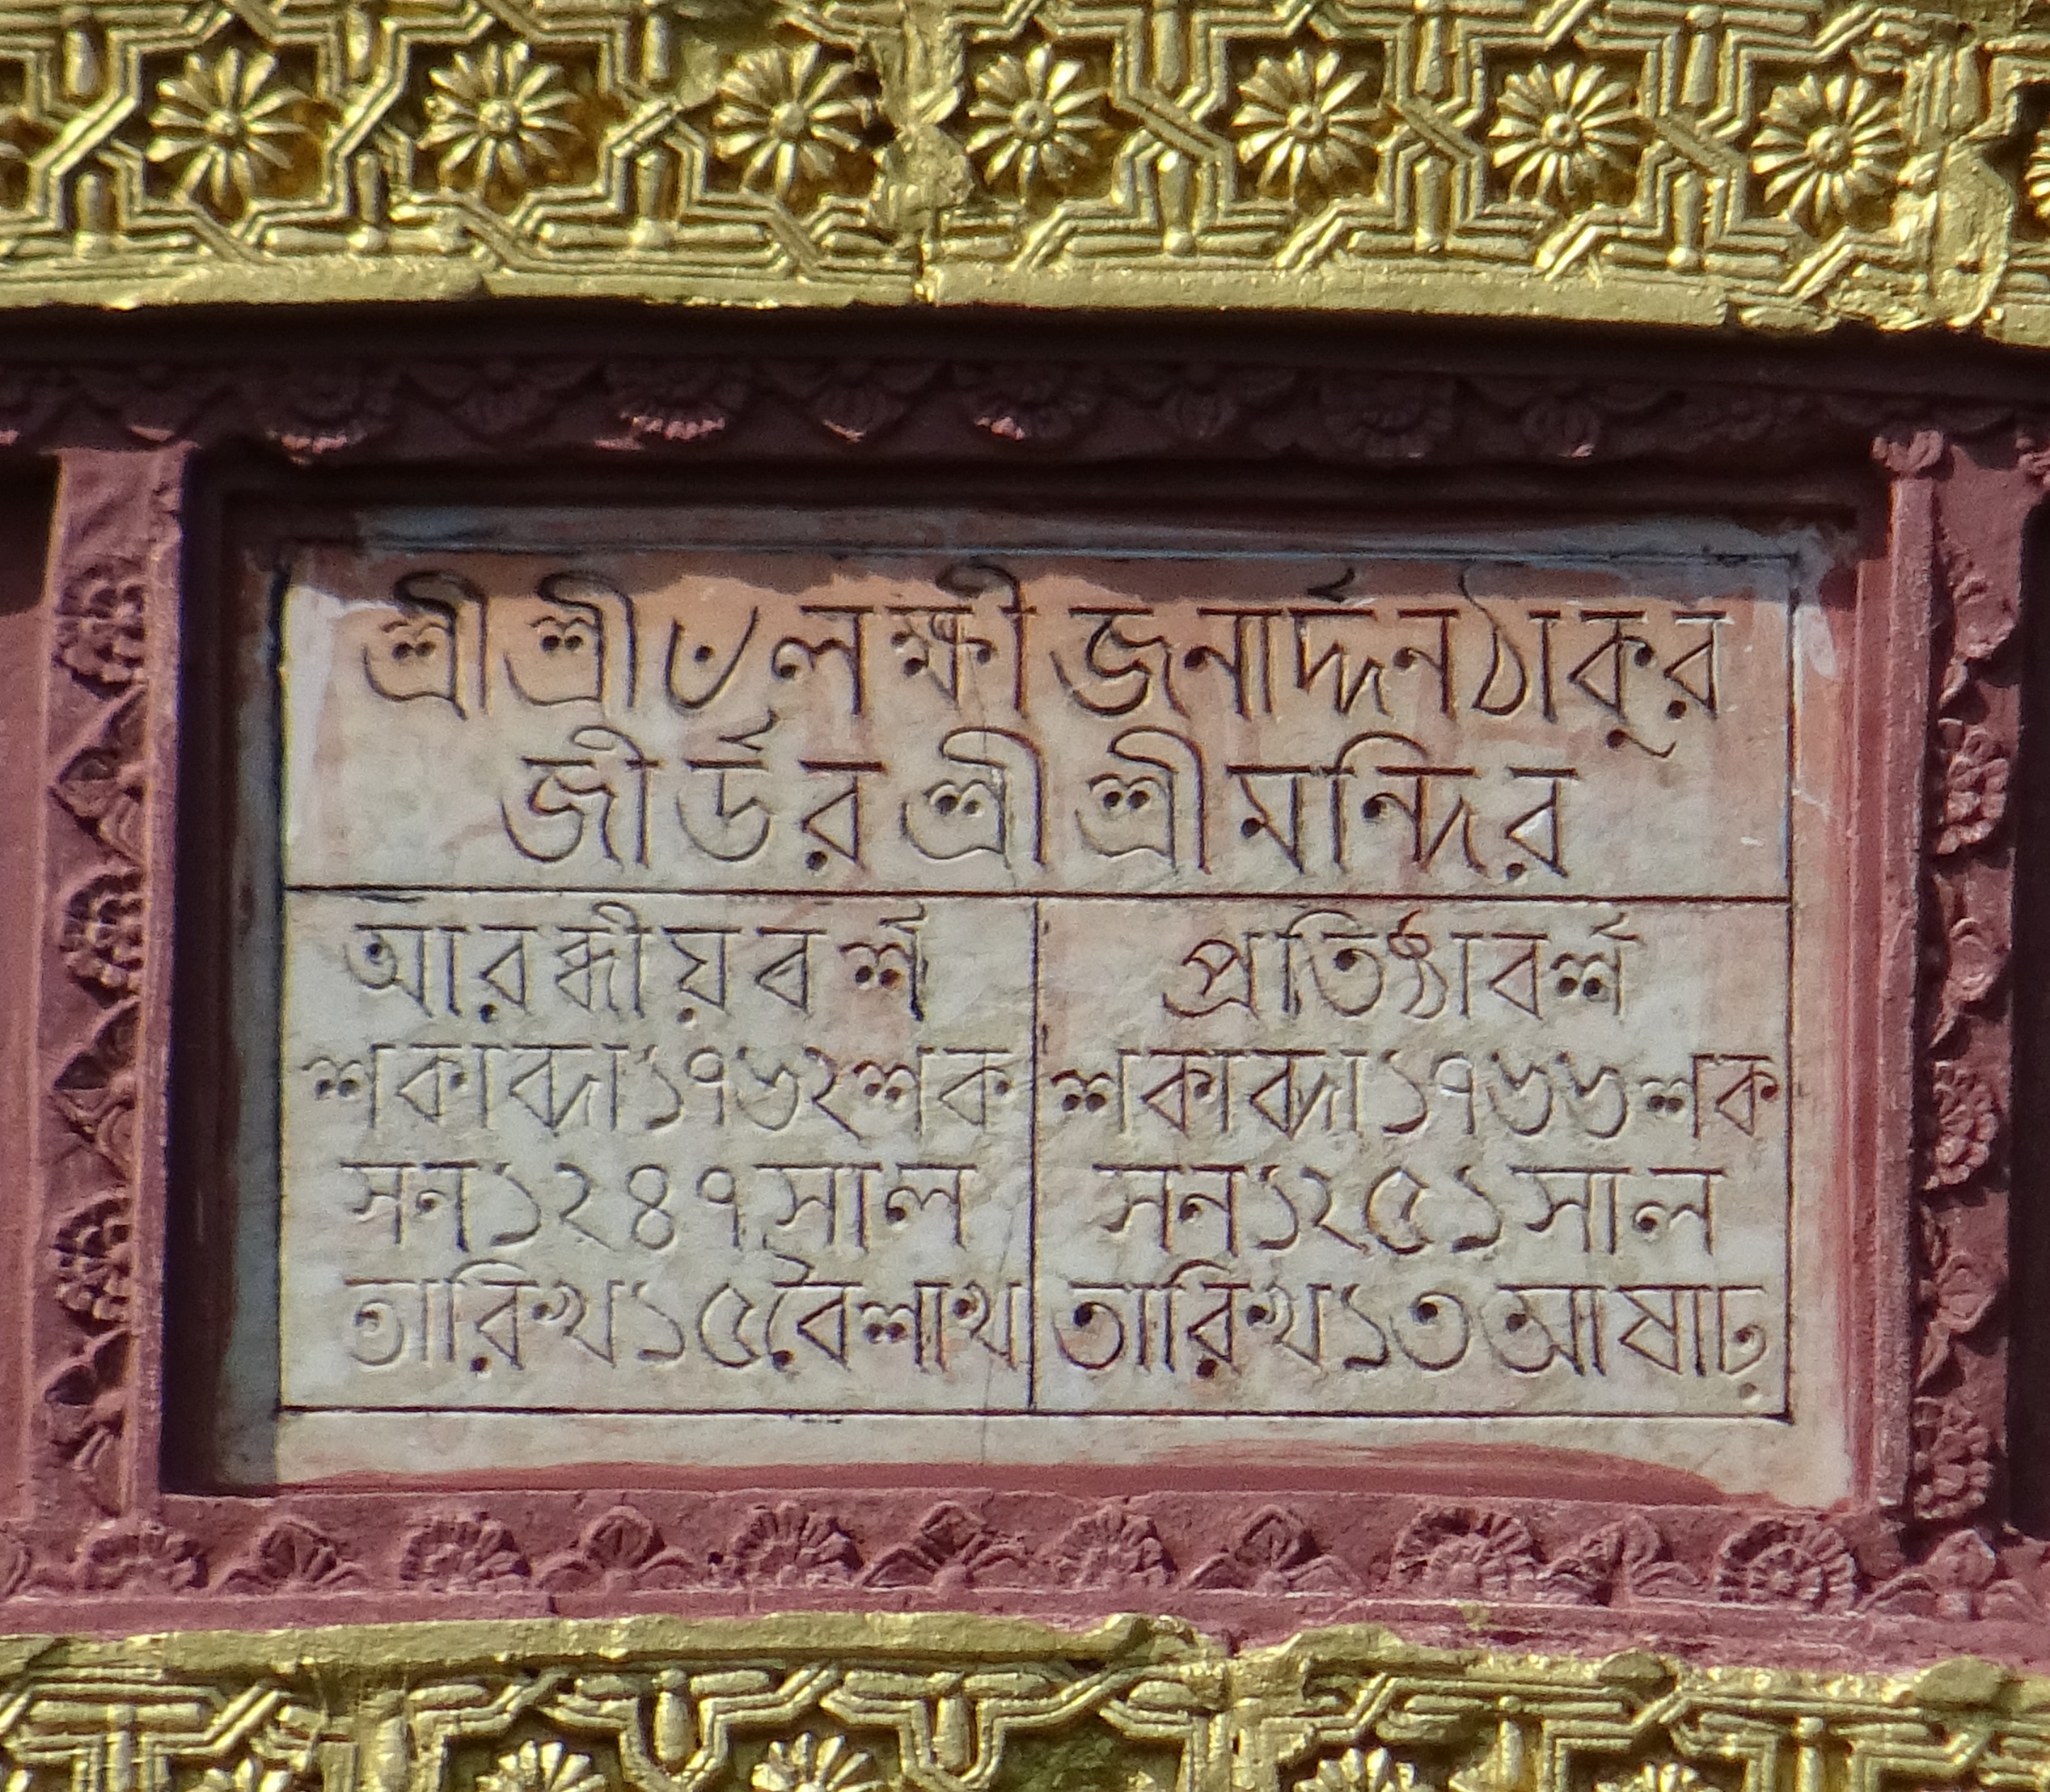 শ্রী শ্রী ৺লক্ষী জনার্দ্দন ঠাকুর
জীর্উর শ্রী শ্রী মন্দির
আরন্ধীয় বর্শ
শকাব্দা ১৭৬২ শক
সন ১২৪৭ সাল
তারিখ ১৫ বৈশাখ
প্রতিষ্ঠা বর্শ
শকাব্দা ১৭৬৬ শক
সন ১২৫১ সাল
তারিখ ১৩ আষাঢ়